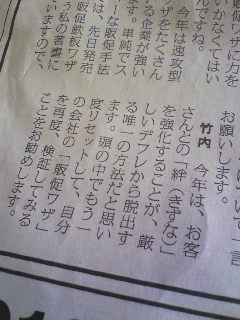 いかなくてはい
んですね。
今年は速攻型
ザをたくさん
いる企業が強い
ます。単純でス
ーな販促手法
は、先日発売
う私の著書に
販促鉄板ワザ
いますので、
一言
お願いします。
竹内 今年は、お客
さんとの「絆(きずな)」
を強化することが、厳
しいデフレから脱出す
る唯一の方法だと思い
ます。頭の中でもう一
度リセットして、自分
の会社の「販促ワザ」
を再度、検証してみる
ことをお勧めします。